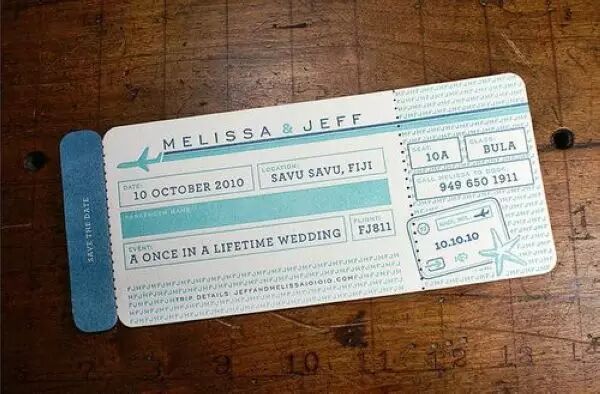 SAVE THE DATE
MELISSA & JEFF
DATE:
10 OCTOBER 2010
LOCATION:
SAVU SAVU, FIJI
PASSENGER NAME:
EVENT:
A ONCE IN A LIFETIME WEDDING
FLIGHT:
FJ811
TRIP DETAILS: JEFFANDMELISSA101010.COM
SEAT:
10A
CLASS:
BULA
CALL MELISSA TO BOOK:
949 650 1911
10.10.10
FIJI
8
9
10
11
12